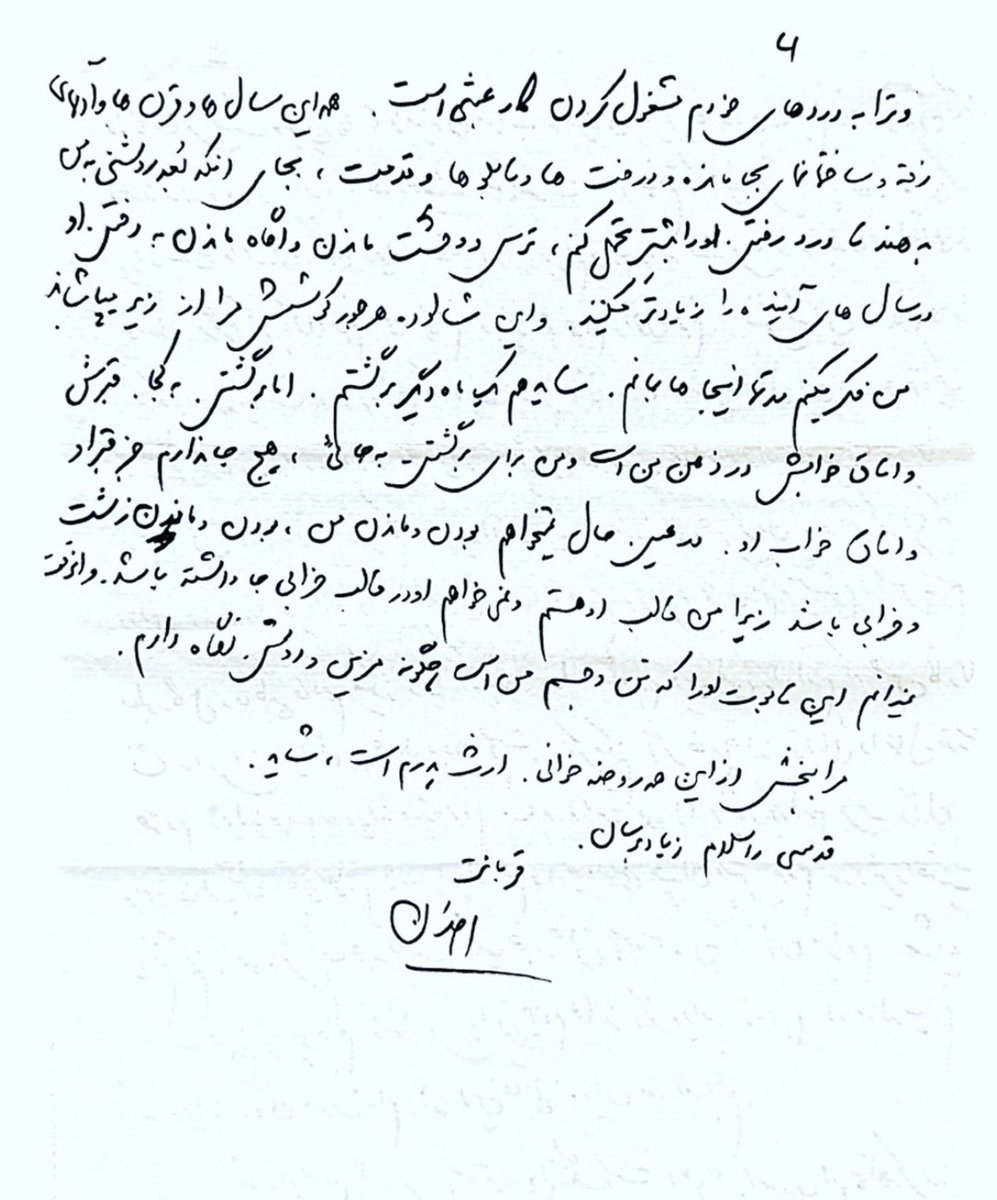 4
و ترا به دردهای خودم مشغول کردن کار عبثی است. همه این سال‌ها و قرن‌ها و آدمهای
رفته و ساختمانهای بجا مانده و درخت‌ها و تابلوها و قدمت، بجای آنکه بُعد روشنی به من
بدهند تا درد رفتن او را بیشتر تحمل کنم، ترس و وحشت ماندن و آگاه ماندن به رفتن او
در سال‌های آینده را زیادتر میکنند. و این شالوده هر جور کوششی را از زیر میپاشاند
من فکر میکنم مدتها اینجاها بمانم. شاید هم یک ماه دیگر برگشتم. اما برگشتن به کجا. قبرش
و اتاق خوابش در ذهن من است و من برای برگشتن به جائی، هیچ جا ندارم جز قبر او
و اتاق خواب او. در عین حال نمیخواهم بودن و ماندن من، بودن و ماندن زشت
و خرابی باشد زیرا من قالب او هستم و نمی‌خواهم او در قالب خرابی جا داشته باشد. و آنوقت
نمیدانم این تابوت او را که تن و جسم من است چگونه مزین و روشن نگاه دارم.
مرا ببخش از این همه روضه خوانی. ارث پدرم است، شاید.
قدسی را سلام زیاد برسان.
قربانت